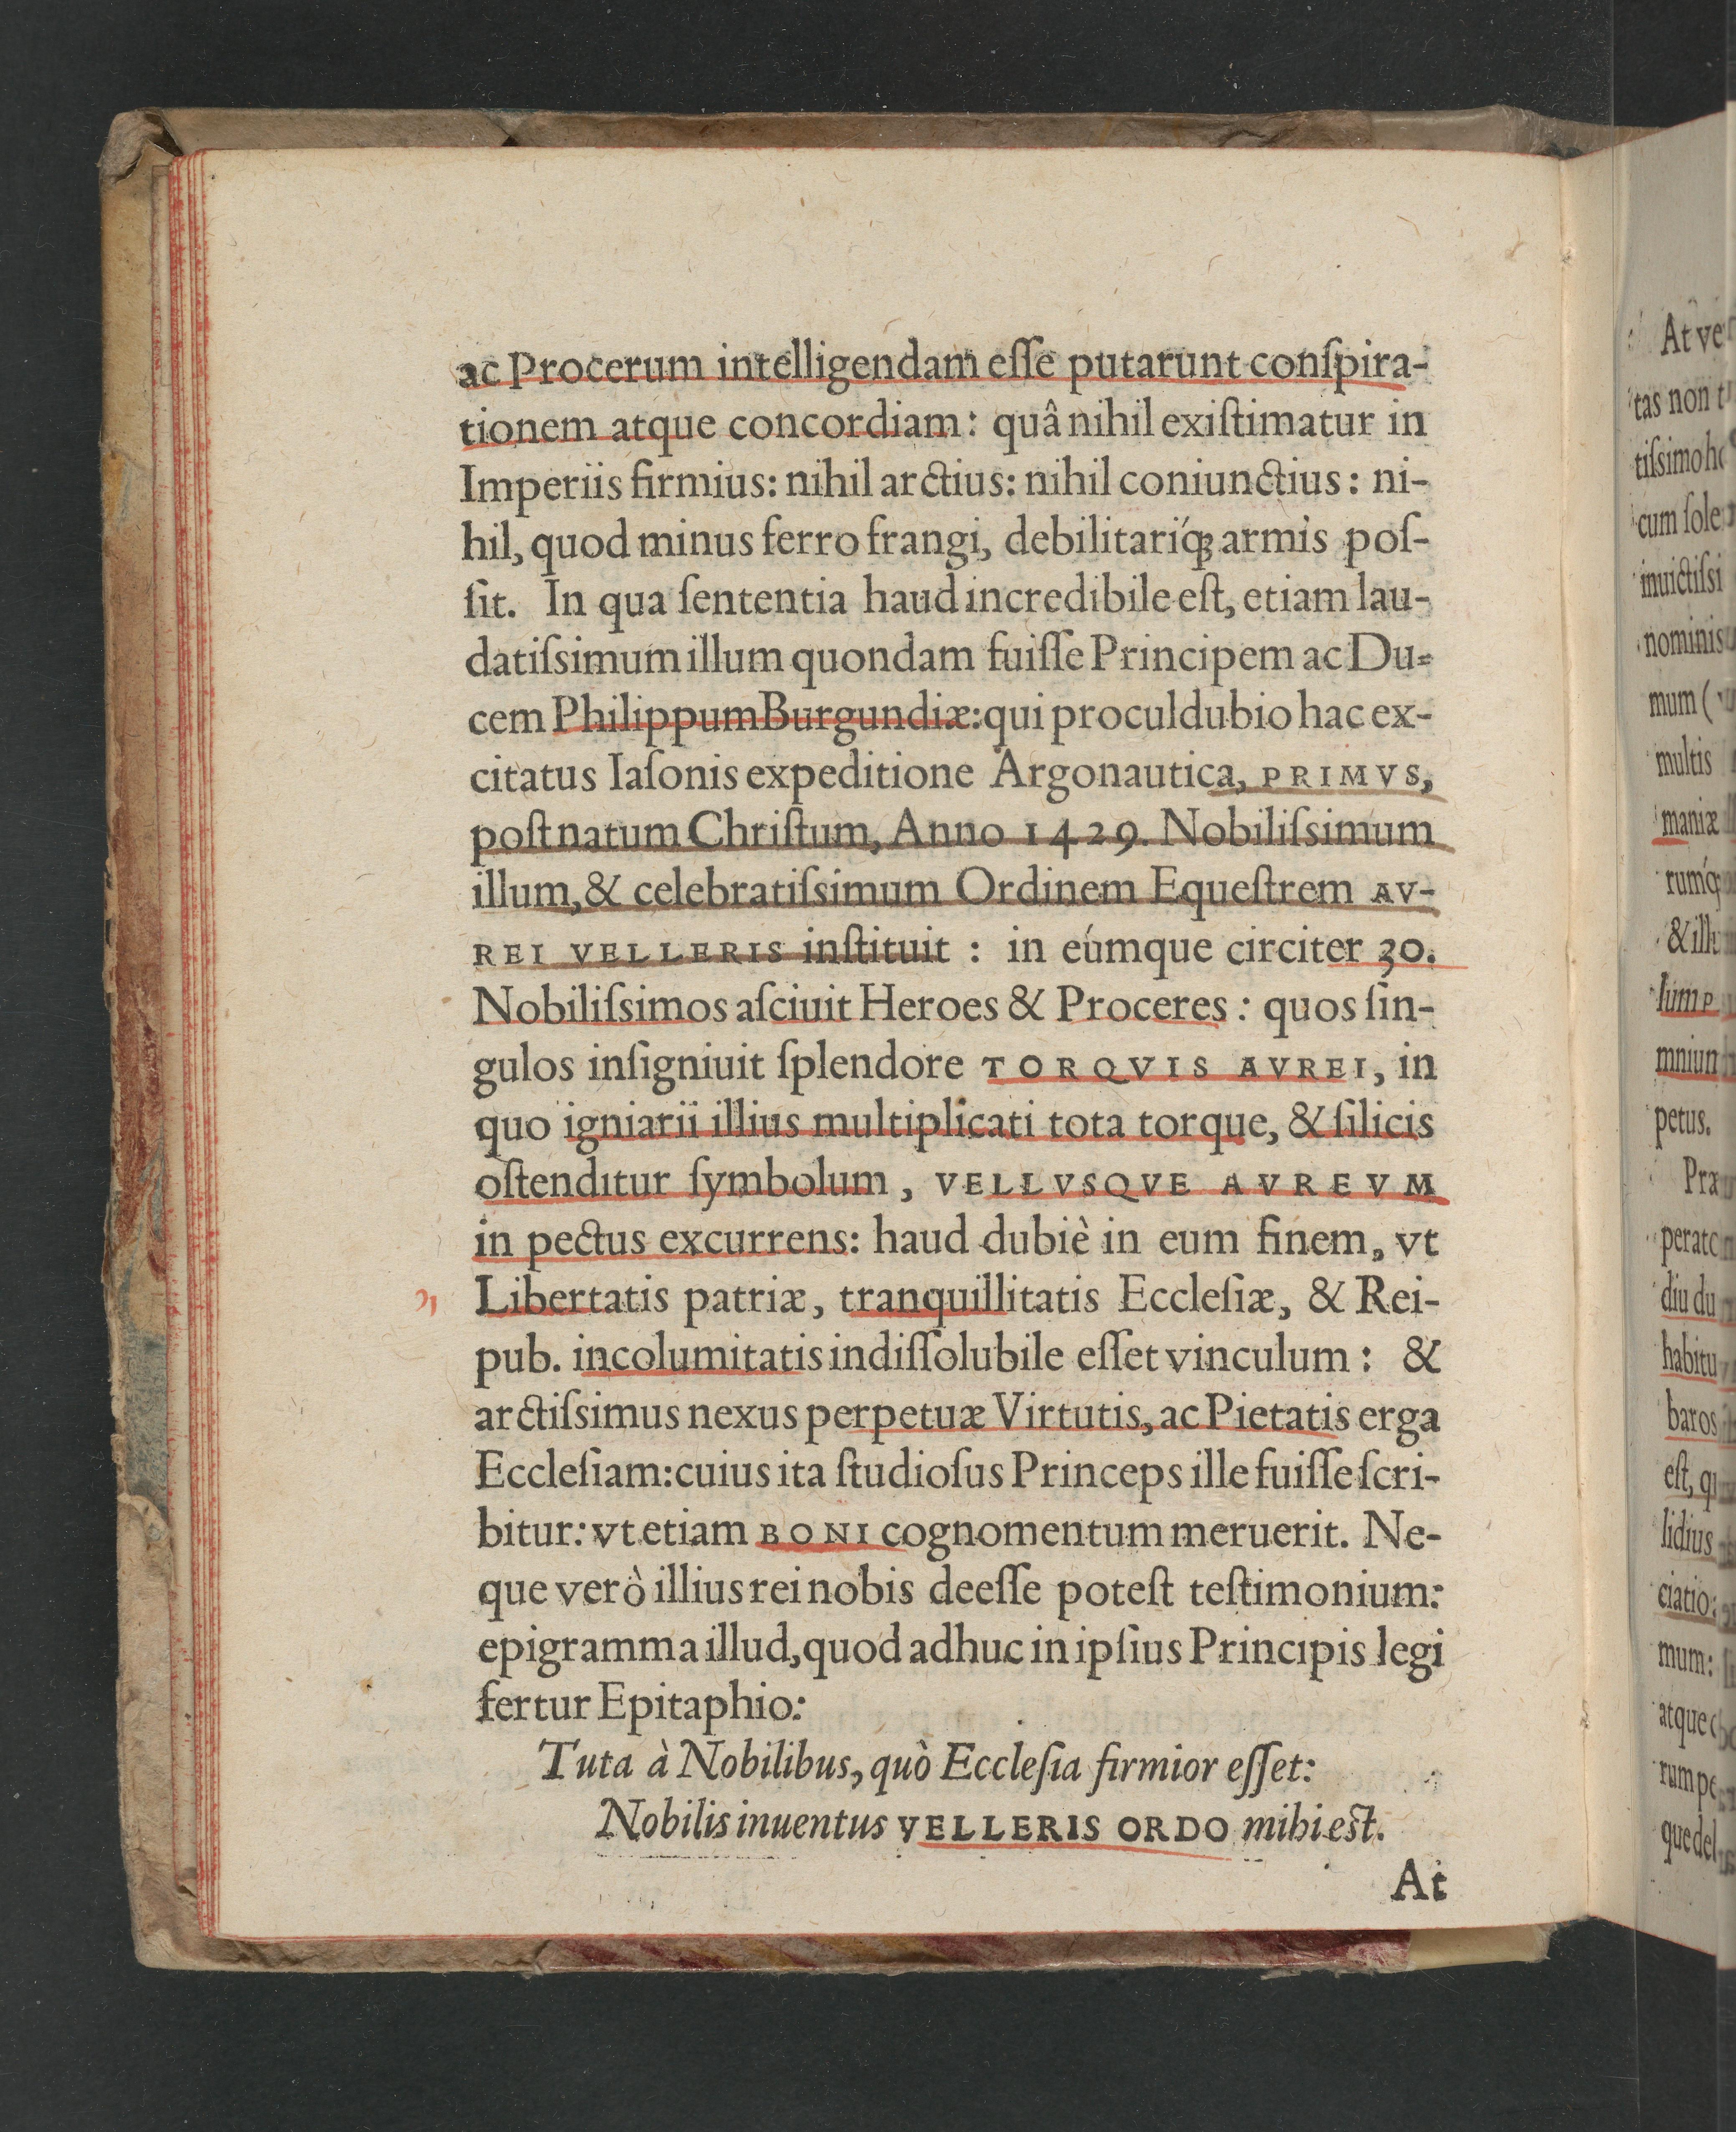 ac Procerum intelligendam eſſe putarunt conſpira-
tionem atque concordiam: quâ nihil exiſtimatur in
Imperiis firmius: nihil arctius: nihil coniunctius: ni-
hil, quod minus ferro frangi, debilitaríq́ꝫ armis poſ-
ſit. In qua ſententia haud incredibile eſt, etiam lau-
datiſsimum illum quondam fuiſſe Principem ac Du-
cem Philippum Burgundiæ: qui proculdubio hac ex-
citatus Iaſonis expeditione Argonautica, PRIMVS,
poſt natum Chriſtum, Anno 1429. Nobiliſsimum
illum, & celebratiſsimum Ordinem Equeſtrem AV-
REI VELLERIS inſtituit : in eúmque circiter 30.
Nobiliſsimos aſciuit Heroes & Proceres : quos ſin-
gulos inſigniuit ſplendore TORQVIS AVREI, in
quo igniarii illius multiplicati tota torque, & ſilicis
oſtenditur ſymbolum, VELLVSQVE AVREVM
in pectus excurrens: haud dubiè in eum finem, vt
Libertatis patriæ, tranquillitatis Eccleſiæ, & Rei-
pub. incolumitatis indiſſolubile eſſet vinculum : &
arctiſsimus nexus perpetuæ Virtutis, ac Pietatis erga
Eccleſiam: cuius ita ſtudioſus Princeps ille fuiſſe ſcri-
bitur: vt etiam BONI cognomentum meruerit. Ne-
que verò illius rei nobis deeſſe poteſt teſtimonium:
epigramma illud, quod adhuc in ipſius Principis legi
fertur Epitaphio:
Tuta à Nobilibus, quò Eccleſia firmior eſſet:
Nobilis inuentus VELLERIS ORDO mihi eſt.
At
At ve
tas non t
tiſsimo
cum ſole
inuictiſsi
nominis
mum (
multis
maniæ
rumq́
& ill
ſum P
mniun
petus.
Præ
perato
diu du
habitu
baros
eſt, q
lidius
ciatio:
mum:
atque
rum pe
que del